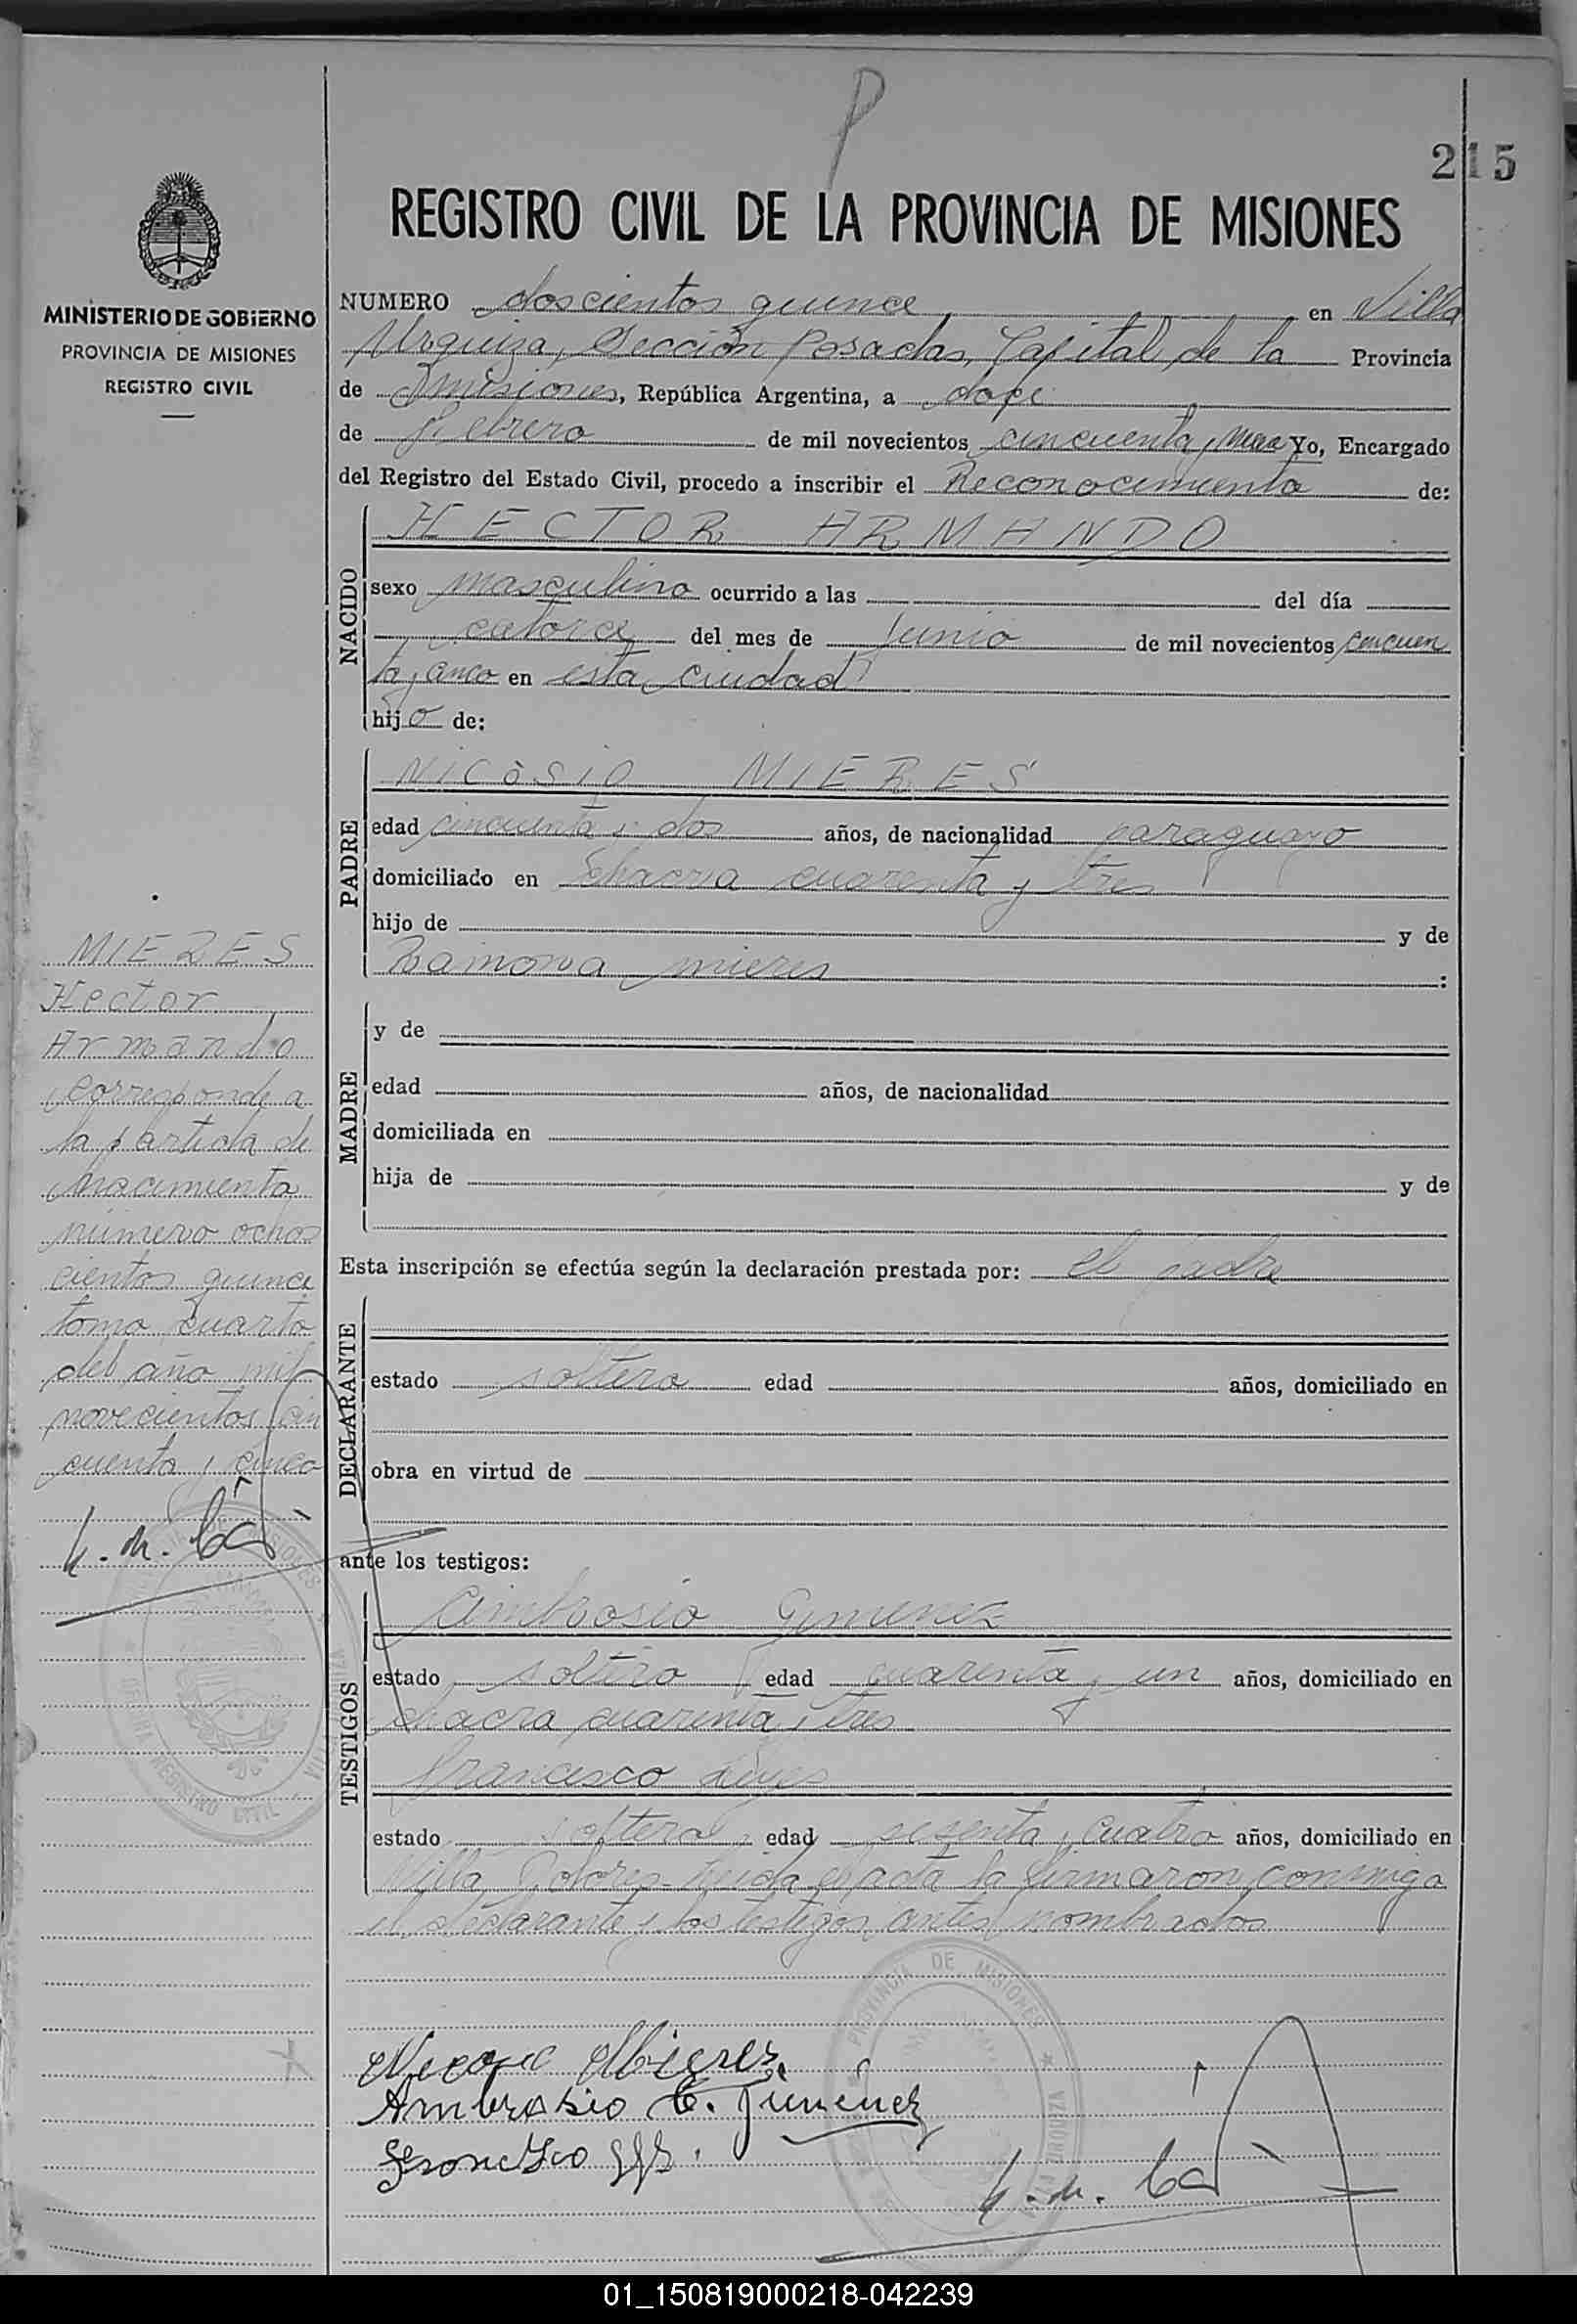 P
215
REGISTRO CIVIL DE LA PROVINCIA DE MISIONES
MINISTERIO DE GOBIERNO
PROVINCIA DE MISIONES
REGISTRO CIVIL
NUMERO doscientos quince en Villa
Urquiza, Sección Posadas, Capital de la Provincia
de Misiones, República Argentina, a doce
de Febrero de mil novecientos cincuenta y Yo, Encargado
del Registro del Estado Civil, procedo a inscribir el Reconocimiento de:
NACIDO
HECTOR ARMANDO
sexo masculino ocurrido a las del día
catorce del mes de Junio de mil novecientos cincuen
ta y cinco en esta ciudad
hijo de:
PADRE
NICOSIO MIERES
edad cincuenta y dos años, de nacionalidad paraguayo
domiciliado en Chacra cuarenta y tres
hijo de y de
Ramona mieres :
MADRE
y de
edad años, de nacionalidad
domiciliada en
hija de y de
Esta inscripción se efectúa según la declaración prestada por: el padre
DECLARANTE
estado soltero edad años, domiciliado en
obra en virtud de
ante los testigos:
TESTIGOS
Ambrosio Gimenez
estado soltero edad cuarenta y un años, domiciliado en
chacra cuarenta y tres
Francisco
estado soltero edad sesenta y cuatro años, domiciliado en
Villa Dolores - Leida el acta la firmaron conmigo
el declarante y los testigos antes nombrados
MIERES
Hector
Armando
Corresponde a
la partida de
Nacimiento
número ochos
cientos quince
tomo Cuarto
del año mil
novecientos cin
cuenta y cinco
Mieres
Ambrosio C. Jimenez
PROVINCIA DE MISIONES
VILLA URQUIZA
OFICINA REGISTRO CIVIL
01_150819000218-042239